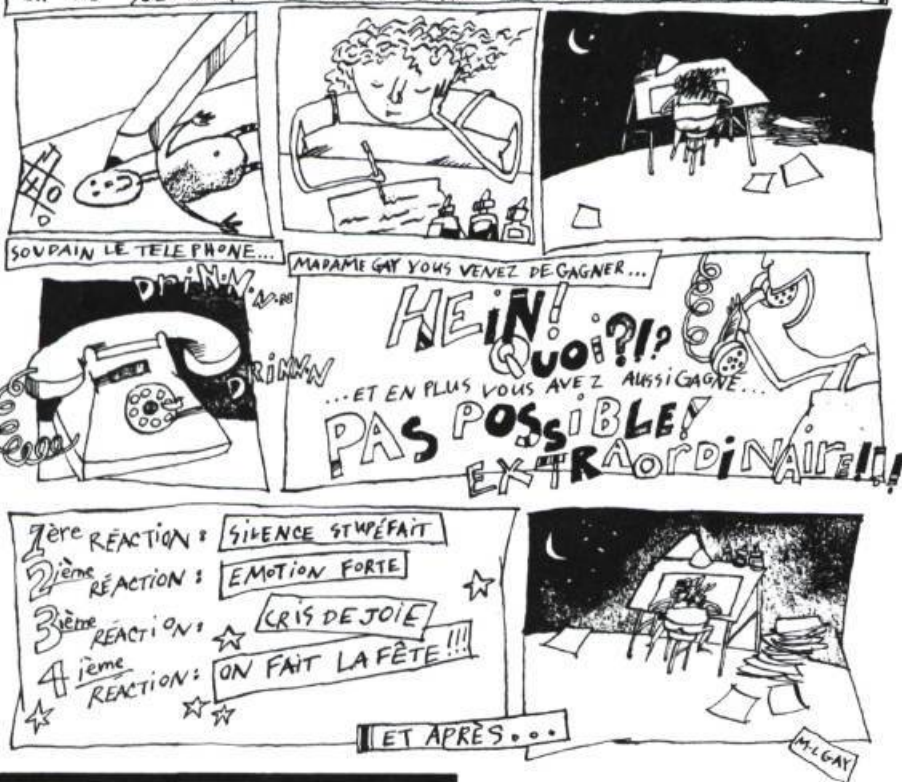 SOUDAIN LE TELEPHONE...
DRiNN.N.
DRiNN.N
MADAME GAY VOUS VENEZ DE GAGNER...
HEiN!
QUOi?!?
...ET EN PLUS VOUS AVEZ AUSSI GAGNE...
PAS POSSiBLE!
EXTRAORDiNAIrE!!!
1ère RÉACTION : SILENCE STUPÉFAIT
2ième RÉACTION : EMOTION FORTE
3ième RÉACTION : CRIS DE JOIE
4ième RÉACTION : ON FAIT LA FÊTE!!!
ET APRÈS...
M-LGAY